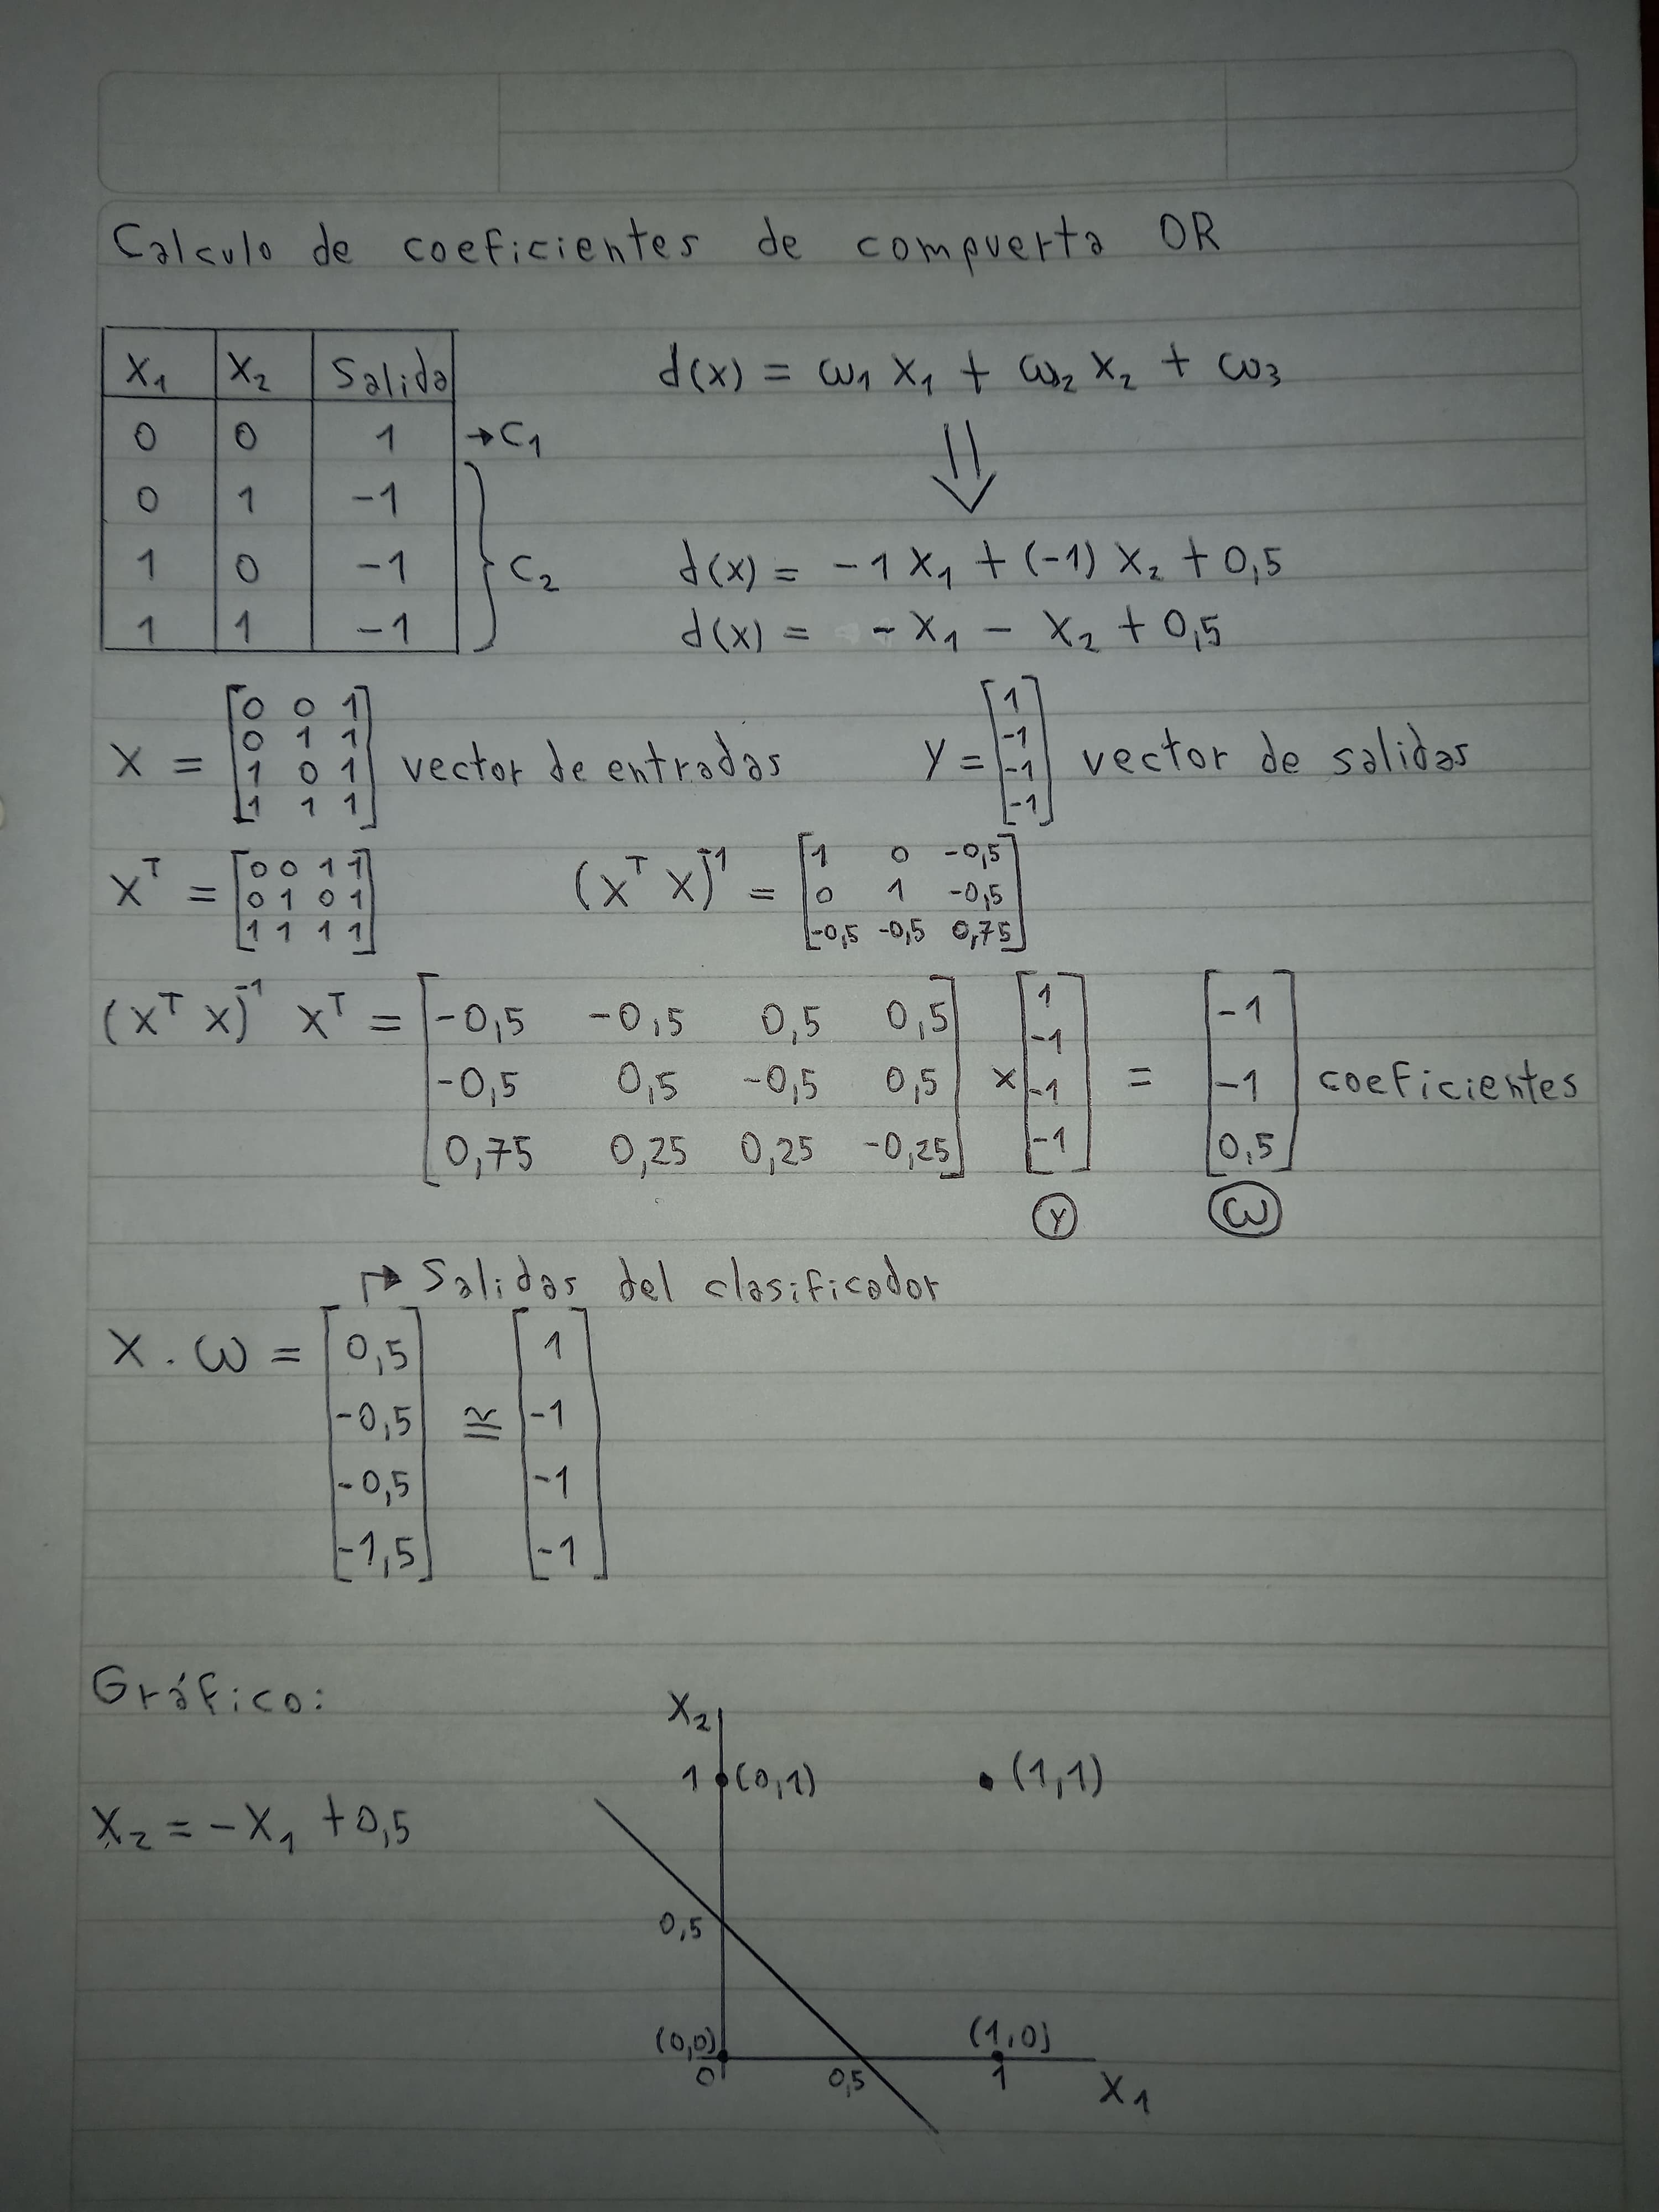 Calculo de coeficientes de compuerta OR
X₁ X₂ Salida
0 0 1 → C₁
0 1 -1
1 0 -1
1 1 -1
} C₂
d(x) = ω₁ X₁ + ω₂ X₂ + ω₃
⇓
d(x) = -1 X₁ + (-1) X₂ + 0,5
d(x) = -X₁ - X₂ + 0,5
X = [0 0 1; 0 1 1; 1 0 1; 1 1 1] vector de entradas Y = [1; -1; -1; -1] vector de salidas
Xᵀ = [0 0 1 1; 0 1 0 1; 1 1 1 1] (Xᵀ X)⁻¹ = [1 0 -0,5; 0 1 -0,5; -0,5 -0,5 0,75]
(Xᵀ X)⁻¹ Xᵀ = [-0,5 -0,5 0,5 0,5; -0,5 0,5 -0,5 0,5; 0,75 0,25 0,25 -0,25] × [1; -1; -1; -1] = [-1; -1; 0,5] coeficientes
Y ω
↱ Salidas del clasificador
X . ω = [0,5; -0,5; -0,5; -1,5] ≅ [1; -1; -1; -1]
Gráfico:
X₂ = -X₁ + 0,5
X₂
1 (0,1) (1,1)
0,5
(0,0) (1,0)
0 0,5 1
X₁